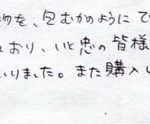 物を、包むかのように
おり、いと忠の皆様
いりました。また購入